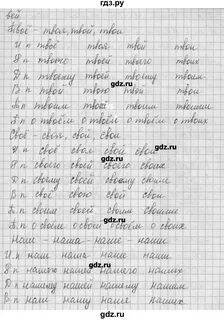 вей
Твоё - твоя, твой, твои
И п твоё твоя твой твои
Р п твоего твоей твоего твоих
Д п твоему твоей твоему твоим
В п твоё твою твой твои
Т п твоим твоей твоим твоими
П п о твоём о твоей о твоём о твоих
Своё - своя, свой, свои
И п своё своя свой свои
Р п своего своей своего своих
Д п своему своей своему своим
В п своё свою свой свои
Т п своим своей своим своими
П п о своём о своей о своём о своих
Наш - наша - наше - наши
И п наш наша наше наши
Р п нашего нашей нашего наших
Д п нашему нашей нашему нашим
В п наш нашу наше наших
gdz.ru